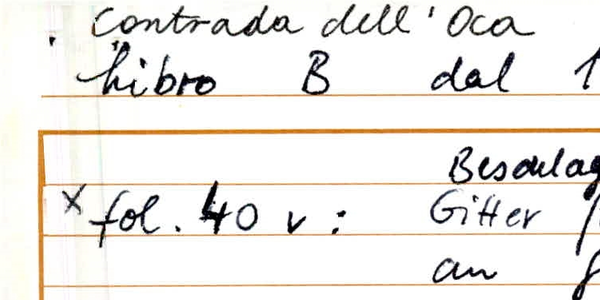 Contrada dell'Oca
Libro B dal 1
Beschlag
x fol. 40 v: Gitter
an